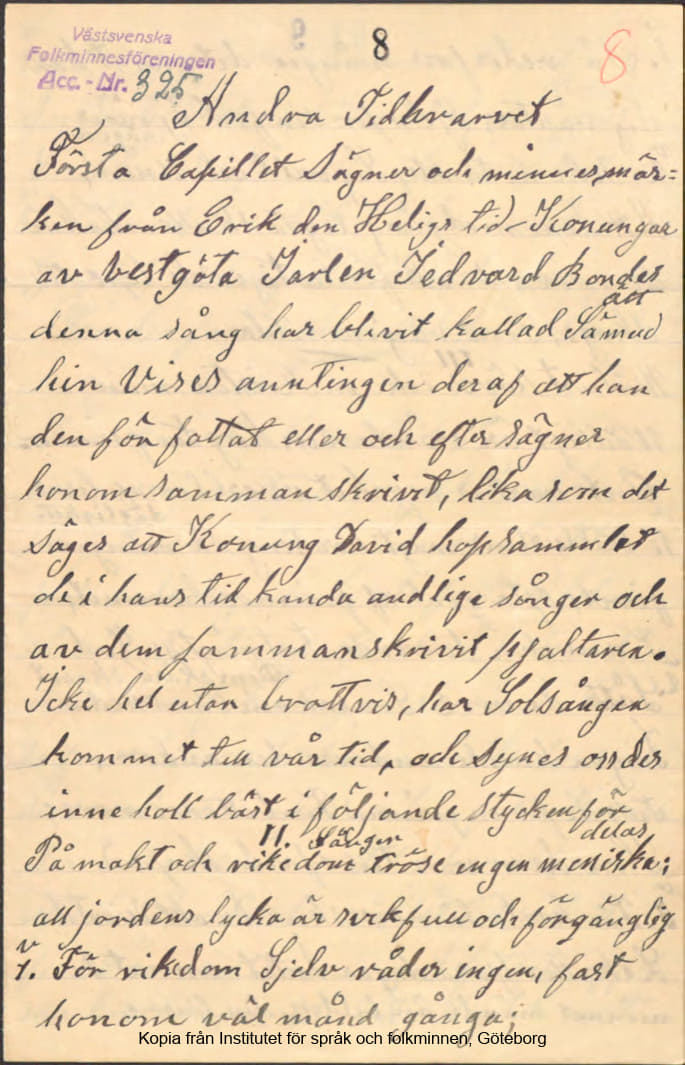 Västsvenska
Folkminnesföreningen
Acc.-Nr. 325
8
8
Andra Tidhvarvet
Första Capillet Sägner och minnesmär=
ken från Erik den Heligs tid - Konungar
av Vestgöta Jarlen Jedvard Bondes
ätt
denna sång har blivit kallad Sämud
hin Vises anntingen deraf att han
den för fattat eller och efter sägner
honom samman skrivit, lika som det
säges att Konung David hopsammlat
de i hans tid kända andlige sånger och
av dem sammanskrivit psaltaren.
Icke hel utan brottvis, har Solsången
kommet till vår tid, och synes oss des
inne håll bäst i följande stycken för
delas
II. Sången
På makt och rikedom tröse ingen meniska;
all jordens lycka är svekfull och förgänglig
v
1. För rikedom Sjelv råder ingen, fast
honom väl månd gånga;
Kopia från Institutet för språk och folkminnen, Göteborg